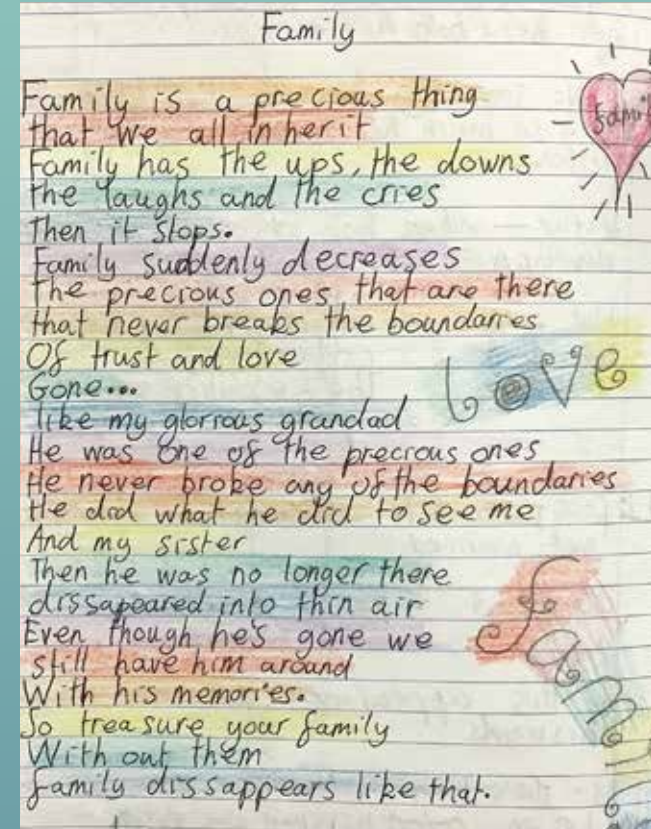 Family
Family is a precious thing
that we all inherit
Family has the ups, the downs
the laughs and the cries
Then it stops.
Family suddenly decreases
the precious ones that are there
that never breaks the boundaries
Of trust and love
Gone...
like my glorious grandad
He was one of the precious ones
He never broke any of the boundaries
He did what he did to see me
And my sister
Then he was no longer there
dissapeared into thin air
Even though he's gone we
still have him around
With his memories.
So treasure your family
With out them
family dissappears like that.
love